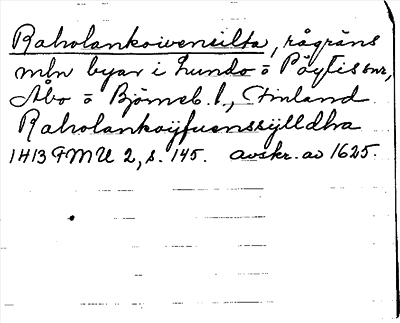 Raholankoivensilta, rågräns
mln byar i Lundo o Pöytis snr,
Åbo o Björneb. l., Finland
Raholankoÿfuenssÿlldha
1413 FMU 2, s. 145. avskr. av 1625.